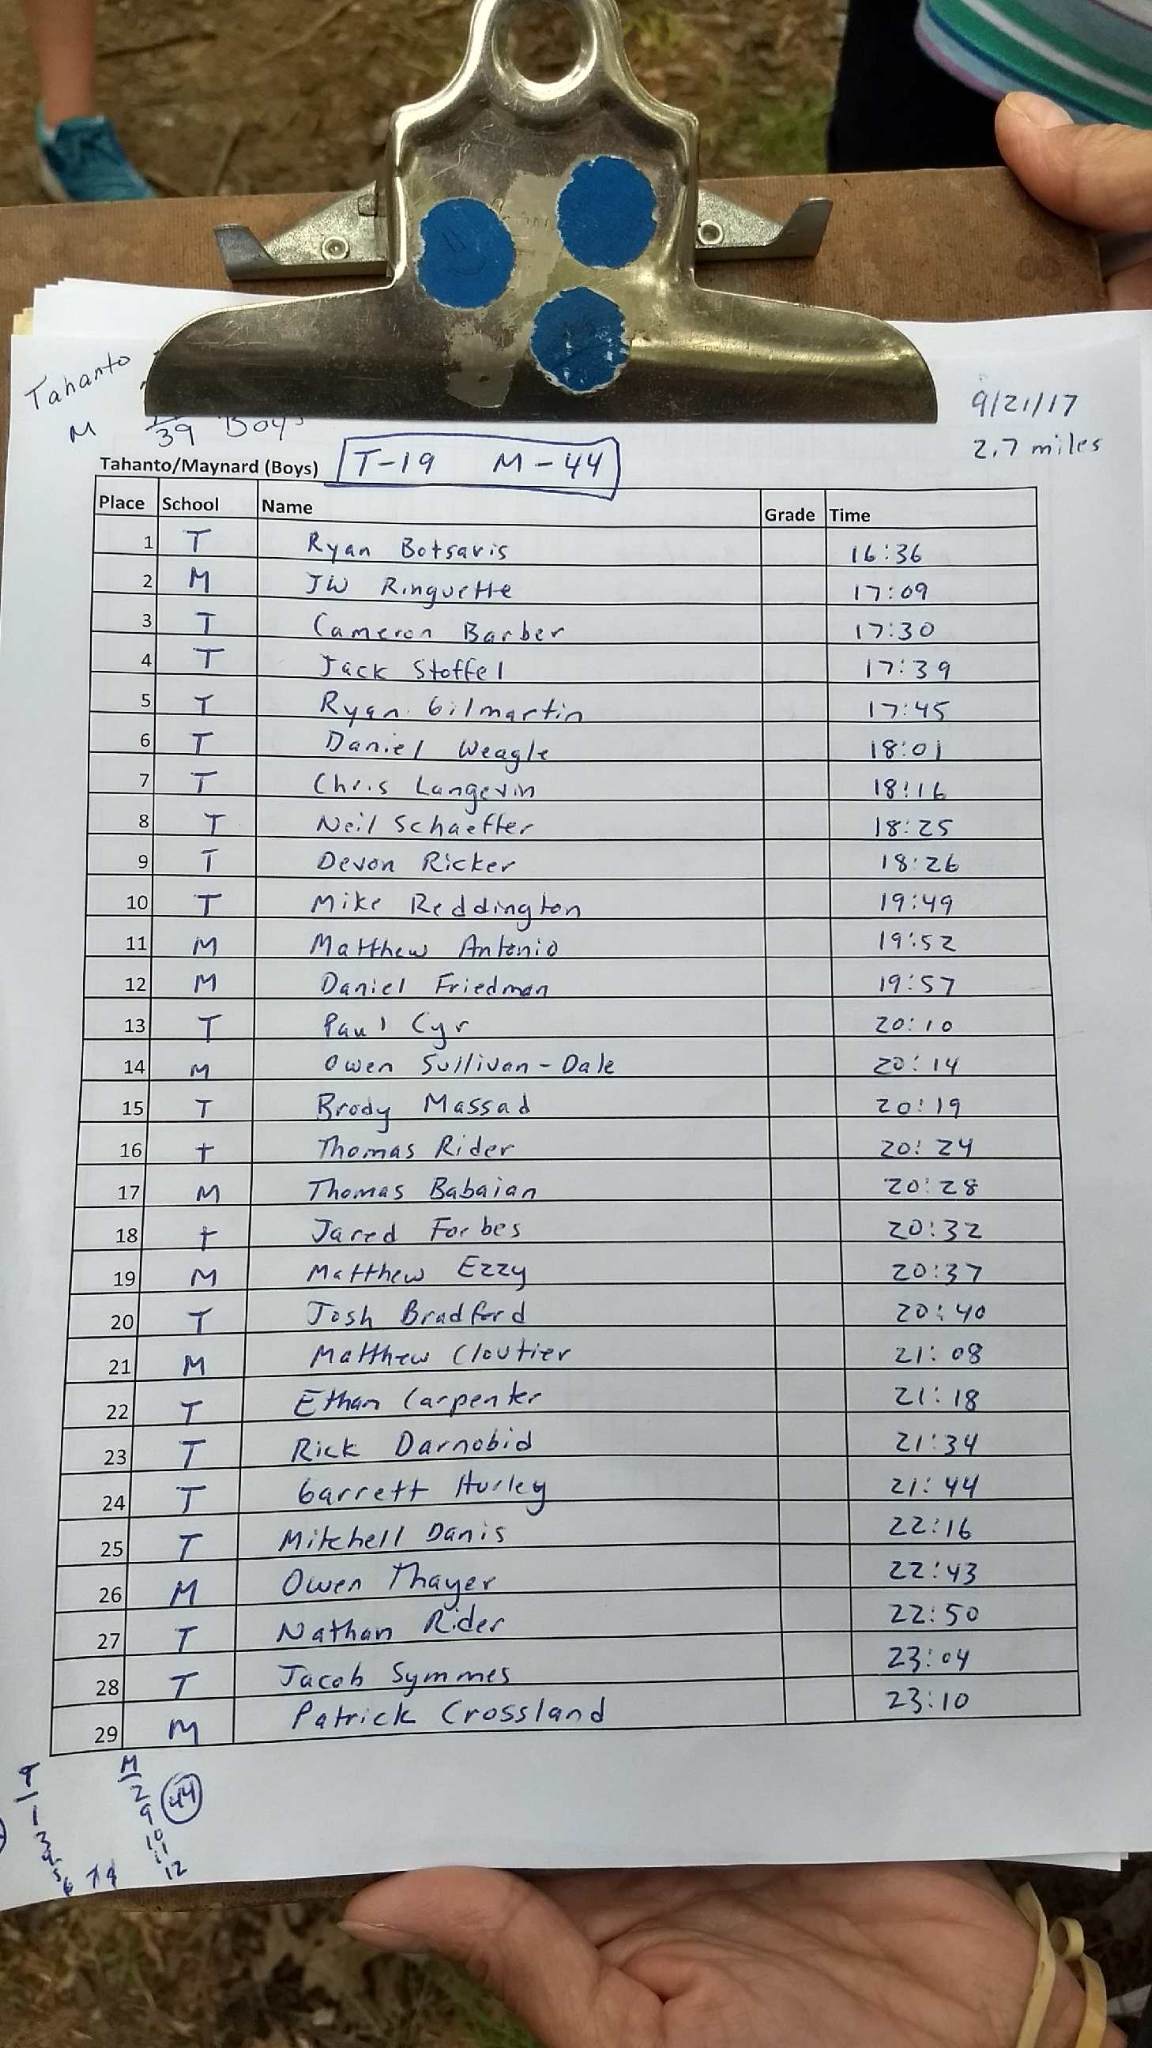 Tahanto
9/21/17
M 39 Boys
2.7 miles
Tahanto/Maynard (Boys) T-19 M-44
Place School Name Grade Time
1 T Ryan Botsaris 16:36
2 M JW Ringuette 17:09
3 T Cameron Barber 17:30
4 T Jack Stoffel 17:39
5 T Ryan Gilmartin 17:45
6 T Daniel Weagle 18:01
7 T Chris Langevin 18:16
8 T Neil Schaeffer 18:25
9 T Devon Ricker 18:26
10 T Mike Reddington 19:49
11 M Matthew Antonio 19:52
12 M Daniel Friedman 19:57
13 T Paul Cyr 20:10
14 M Owen Sullivan-Dale 20:14
15 T Brody Massad 20:19
16 T Thomas Rider 20:24
17 M Thomas Babaian 20:28
18 T Jared Forbes 20:32
19 M Matthew Ezzy 20:37
20 T Josh Bradford 20:40
21 M Matthew Cloutier 21:08
22 T Ethan Carpenter 21:18
23 T Rick Darnobid 21:34
24 T Garrett Hurley 21:44
25 T Mitchell Danis 22:16
26 M Owen Thayer 22:43
27 T Nathan Rider 22:50
28 T Jacob Symmes 23:04
29 M Patrick Crossland 23:10
T M
1 2 44
3 9
4 10
5 11
6 12